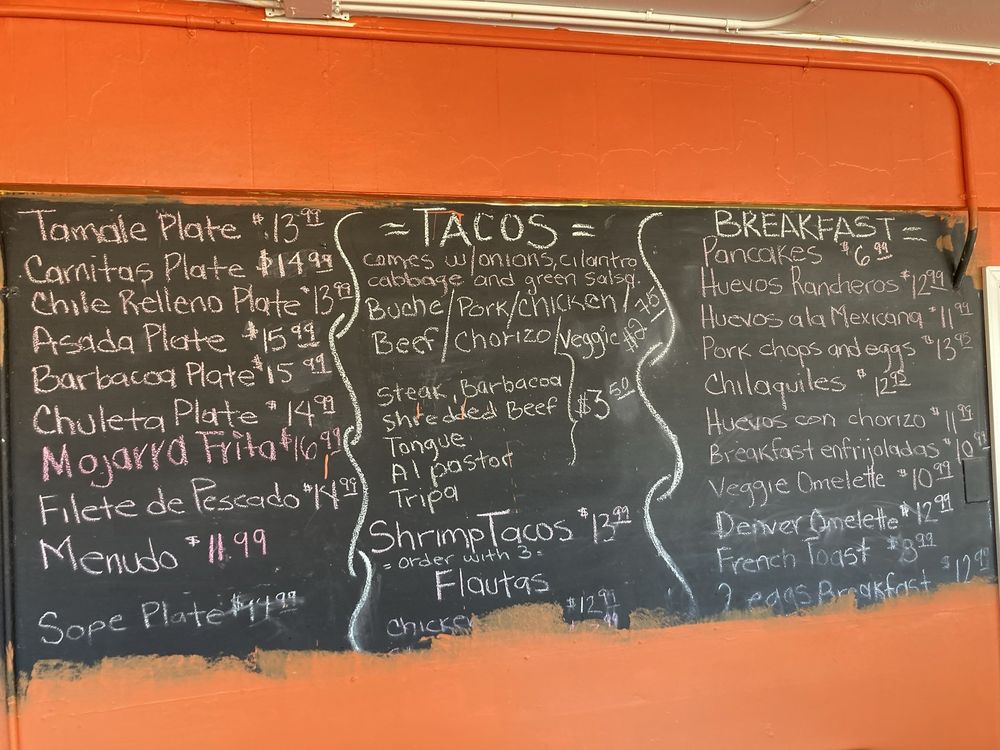 Tamale Plate $13.99
Carnitas Plate $14.99
Chile Relleno Plate $13.99
Asada Plate $15.99
Barbacoa Plate $15.99
Chuleta Plate $14.99
Mojarra Frita $16.99
Filete de Pescado $14.99
Menudo $11.99
Sope Plate
= TACOS =
comes w/onions, cilantro
cabbage and green salsa.
Buche/Pork/chicken/
Beef/chorizo/veggie $2.75
Steak, Barbacoa
Shredded Beef $3.50
Tongue
Al pastor
Tripa
Shrimp Tacos $13.99
= order with 3 =
Flautas
$12.99
BREAKFAST =
Pancakes $6.99
Huevos Rancheros $12.99
Huevos a la Mexicana $11.99
Pork chops and eggs $13.95
Chilaquiles $12.95
Huevos con chorizo $11.99
Breakfast enfrijoladas $10.99
Veggie Omelette $10.99
Denver Omelette $12.99
French Toast $8.99
2 eggs Breakfast $12.99